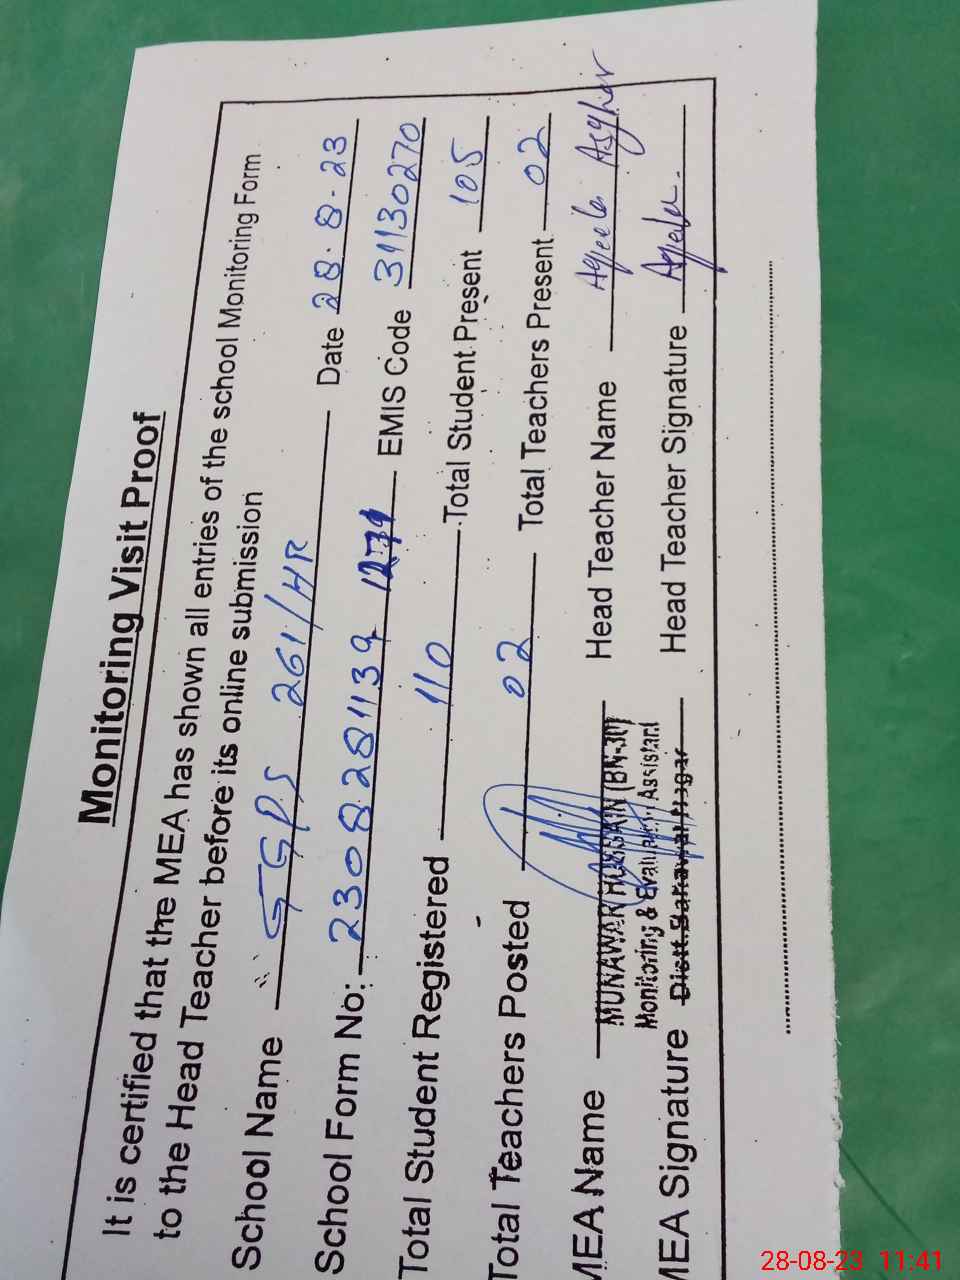 Monitoring Visit Proof
It is certified that the MEA has shown all entries of the school Monitoring Form
to the Head Teacher before its online submission
School Name GGPS 261/HR Date 28.8.23
School Form No: 2308281139 EMIS Code 31130270
Total Student Registered 110 Total Student Present 105
Total Teachers Posted 02 Total Teachers Present 02
MEA Name MUNAWAR HUSSAIN (BN-30) Head Teacher Name Aqeela Asghar
Monitoring & Evaluation Assistant
MEA Signature Distt. Bahawal Nagar Head Teacher Signature Aqeela.
28-08-23 11:41